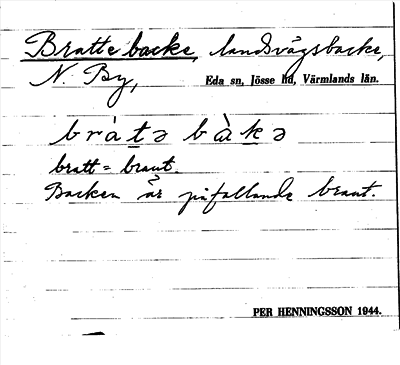 Bratte backe, landsvägsbacke,
N. By,
Eda sn, Jösse hd, Värmlands län.
bràtə bàkə
bratt = braut.
Backen är påfallande braut.
PER HENNINGSSON 1944.